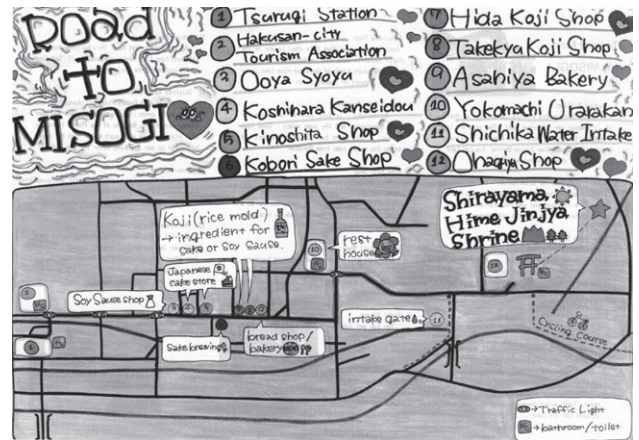 Road
to
MISOGI
1 Tsurugi Station
2 Hakusan-city
Tourism Association
3 Ooya Syoyu
4 Koshihara Kanseidou
5 Kinoshita Shop
6 Kobori Sake Shop
7 Hida Koji Shop
8 Takekyu Koji Shop
9 Asahiya Bakery
10 Yokomachi Urarakan
11 Shichika Water Intake
12 Ohagiya Shop
Koji (rice mold)
→ ingredient for
sake or soy sause.
Japanese
cake store
Soy Sause shop
10
rest
house
Shirayama
Hime Jinjya
Shrine
12
intake gate
11
Cycling course
Sake brewing
bread shop/
bakery
→ Traffic Light
→ bathroom/toilet